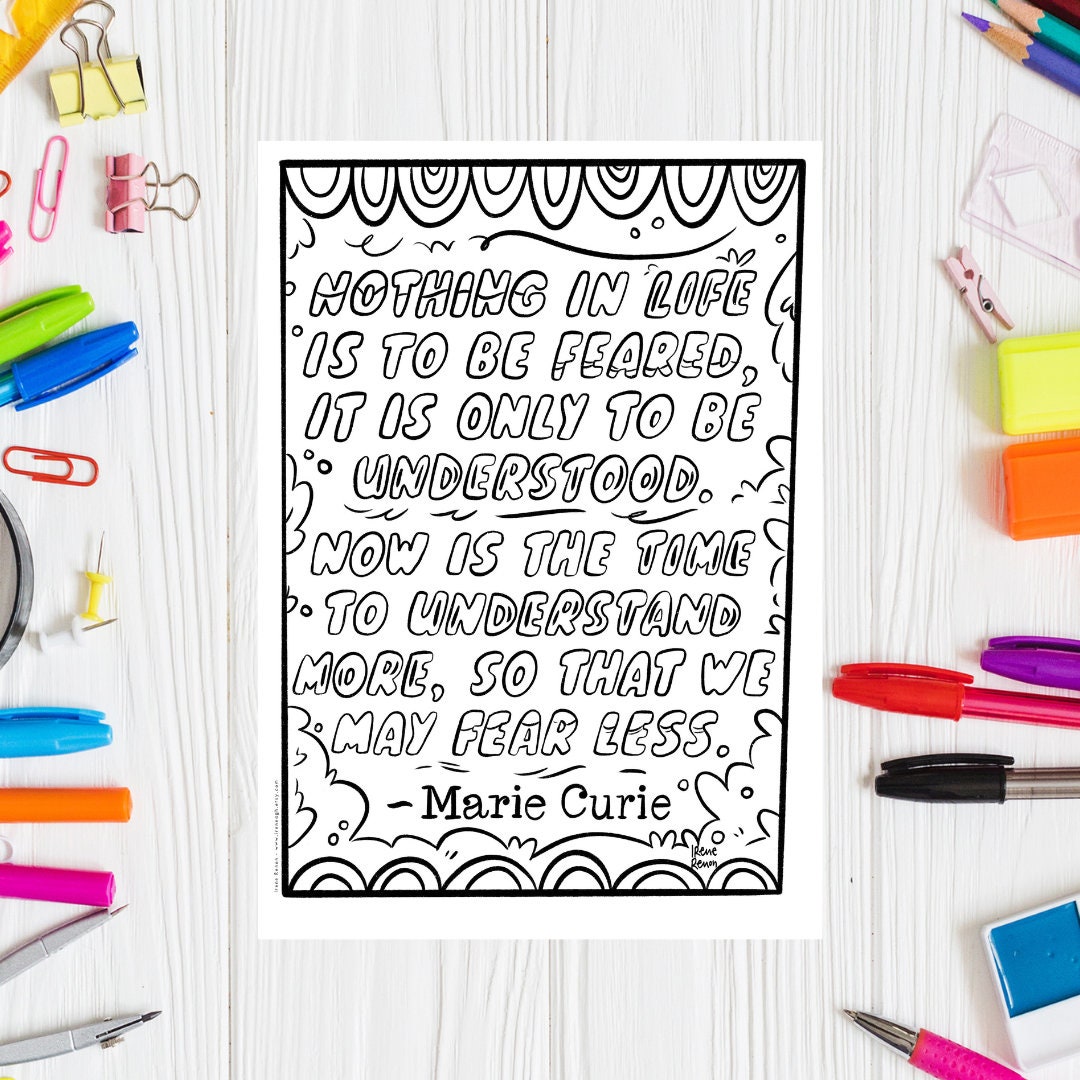 NOTHING IN LIFE
IS TO BE FEARED,
IT IS ONLY TO BE
UNDERSTOOD.
NOW IS THE TIME
TO UNDERSTAND
MORE, SO THAT WE
MAY FEAR LESS.
~ Marie Curie
IRENE
RENON
Irene Renon - www.ireneagh.etsy.com